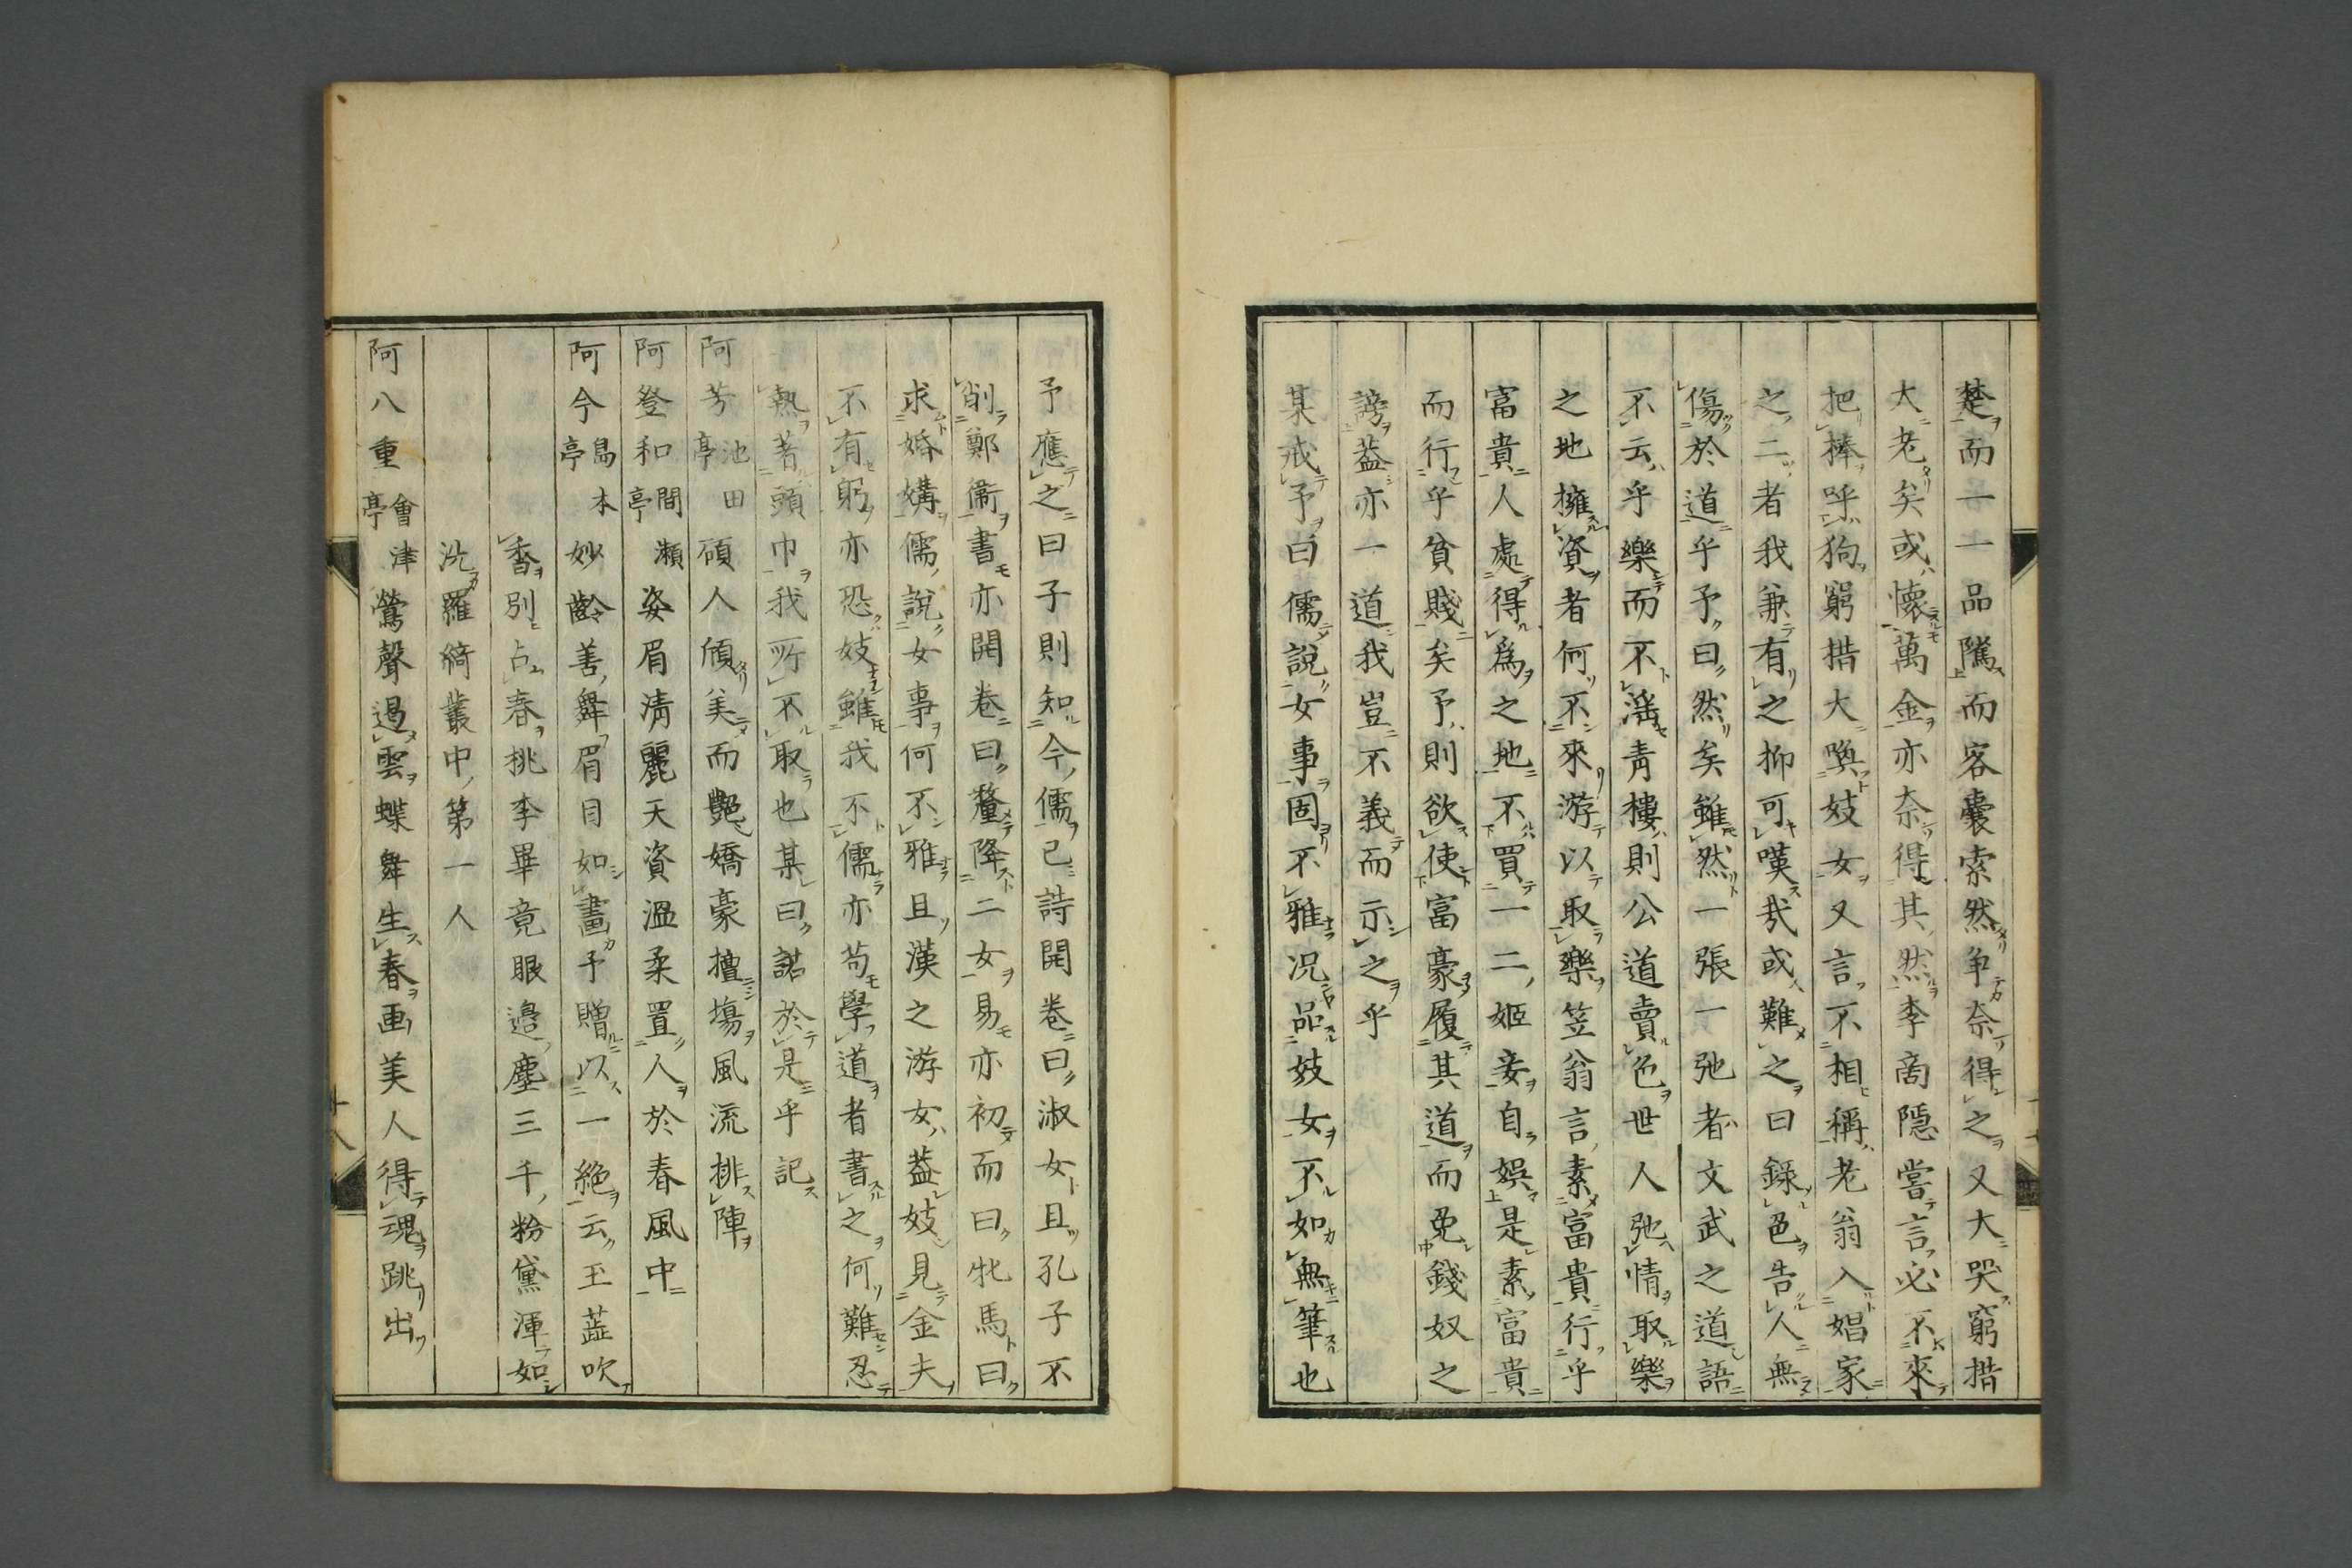 楚而一一品隲而客囊索然争奈得之又大哭窮措
大老矣或懷萬金亦奈得其然李商隱嘗言必不來
把棒呼狗窮措大喚妓女又言不相稱老翁入娼家
之二者我兼有之抑可嘆哉或難之曰錄色告人無
傷於道乎予曰然矣雖然一張一弛者文武之道語
不云乎樂而不淫青樓則公道賣色世人弛情取樂
之地擁資者何不來游以取樂笠翁言素富貴行乎
富貴人處得爲之地不買一二姬妾自娯是素富貴
而行乎貧賤矣予則欲使富豪履其道而免錢奴之
謗葢亦一道我豈不義而示之乎
某戒予曰儒說女事固不雅况品妓女不如無筆也
予應之曰子則知今儒已詩開卷曰淑女且孔子不
削鄭衞書亦開卷曰釐降二女易亦初而曰牝馬曰
求婚媾儒說女事何不雅且漢之游女葢妓見金夫
不有躬亦恐妓雖我不儒亦苟學道者書之何難忍
熱著頭巾我所不取也某曰諾於是乎記
阿芳池田亭碩人頎美而艷嬌豪擅塲風流排陣
阿登和間瀬亭姿眉清麗天資溫柔置人於春風中
阿今島本亭妙齡善舞眉目如畫予贈以一絶云玉蕋吹
香別占春挑李畢竟眼邉塵三千粉黛渾如
洗羅綺叢中第一人
阿八重會津亭鶯聲遏雲蝶舞生春画美人得魂跳出
十八